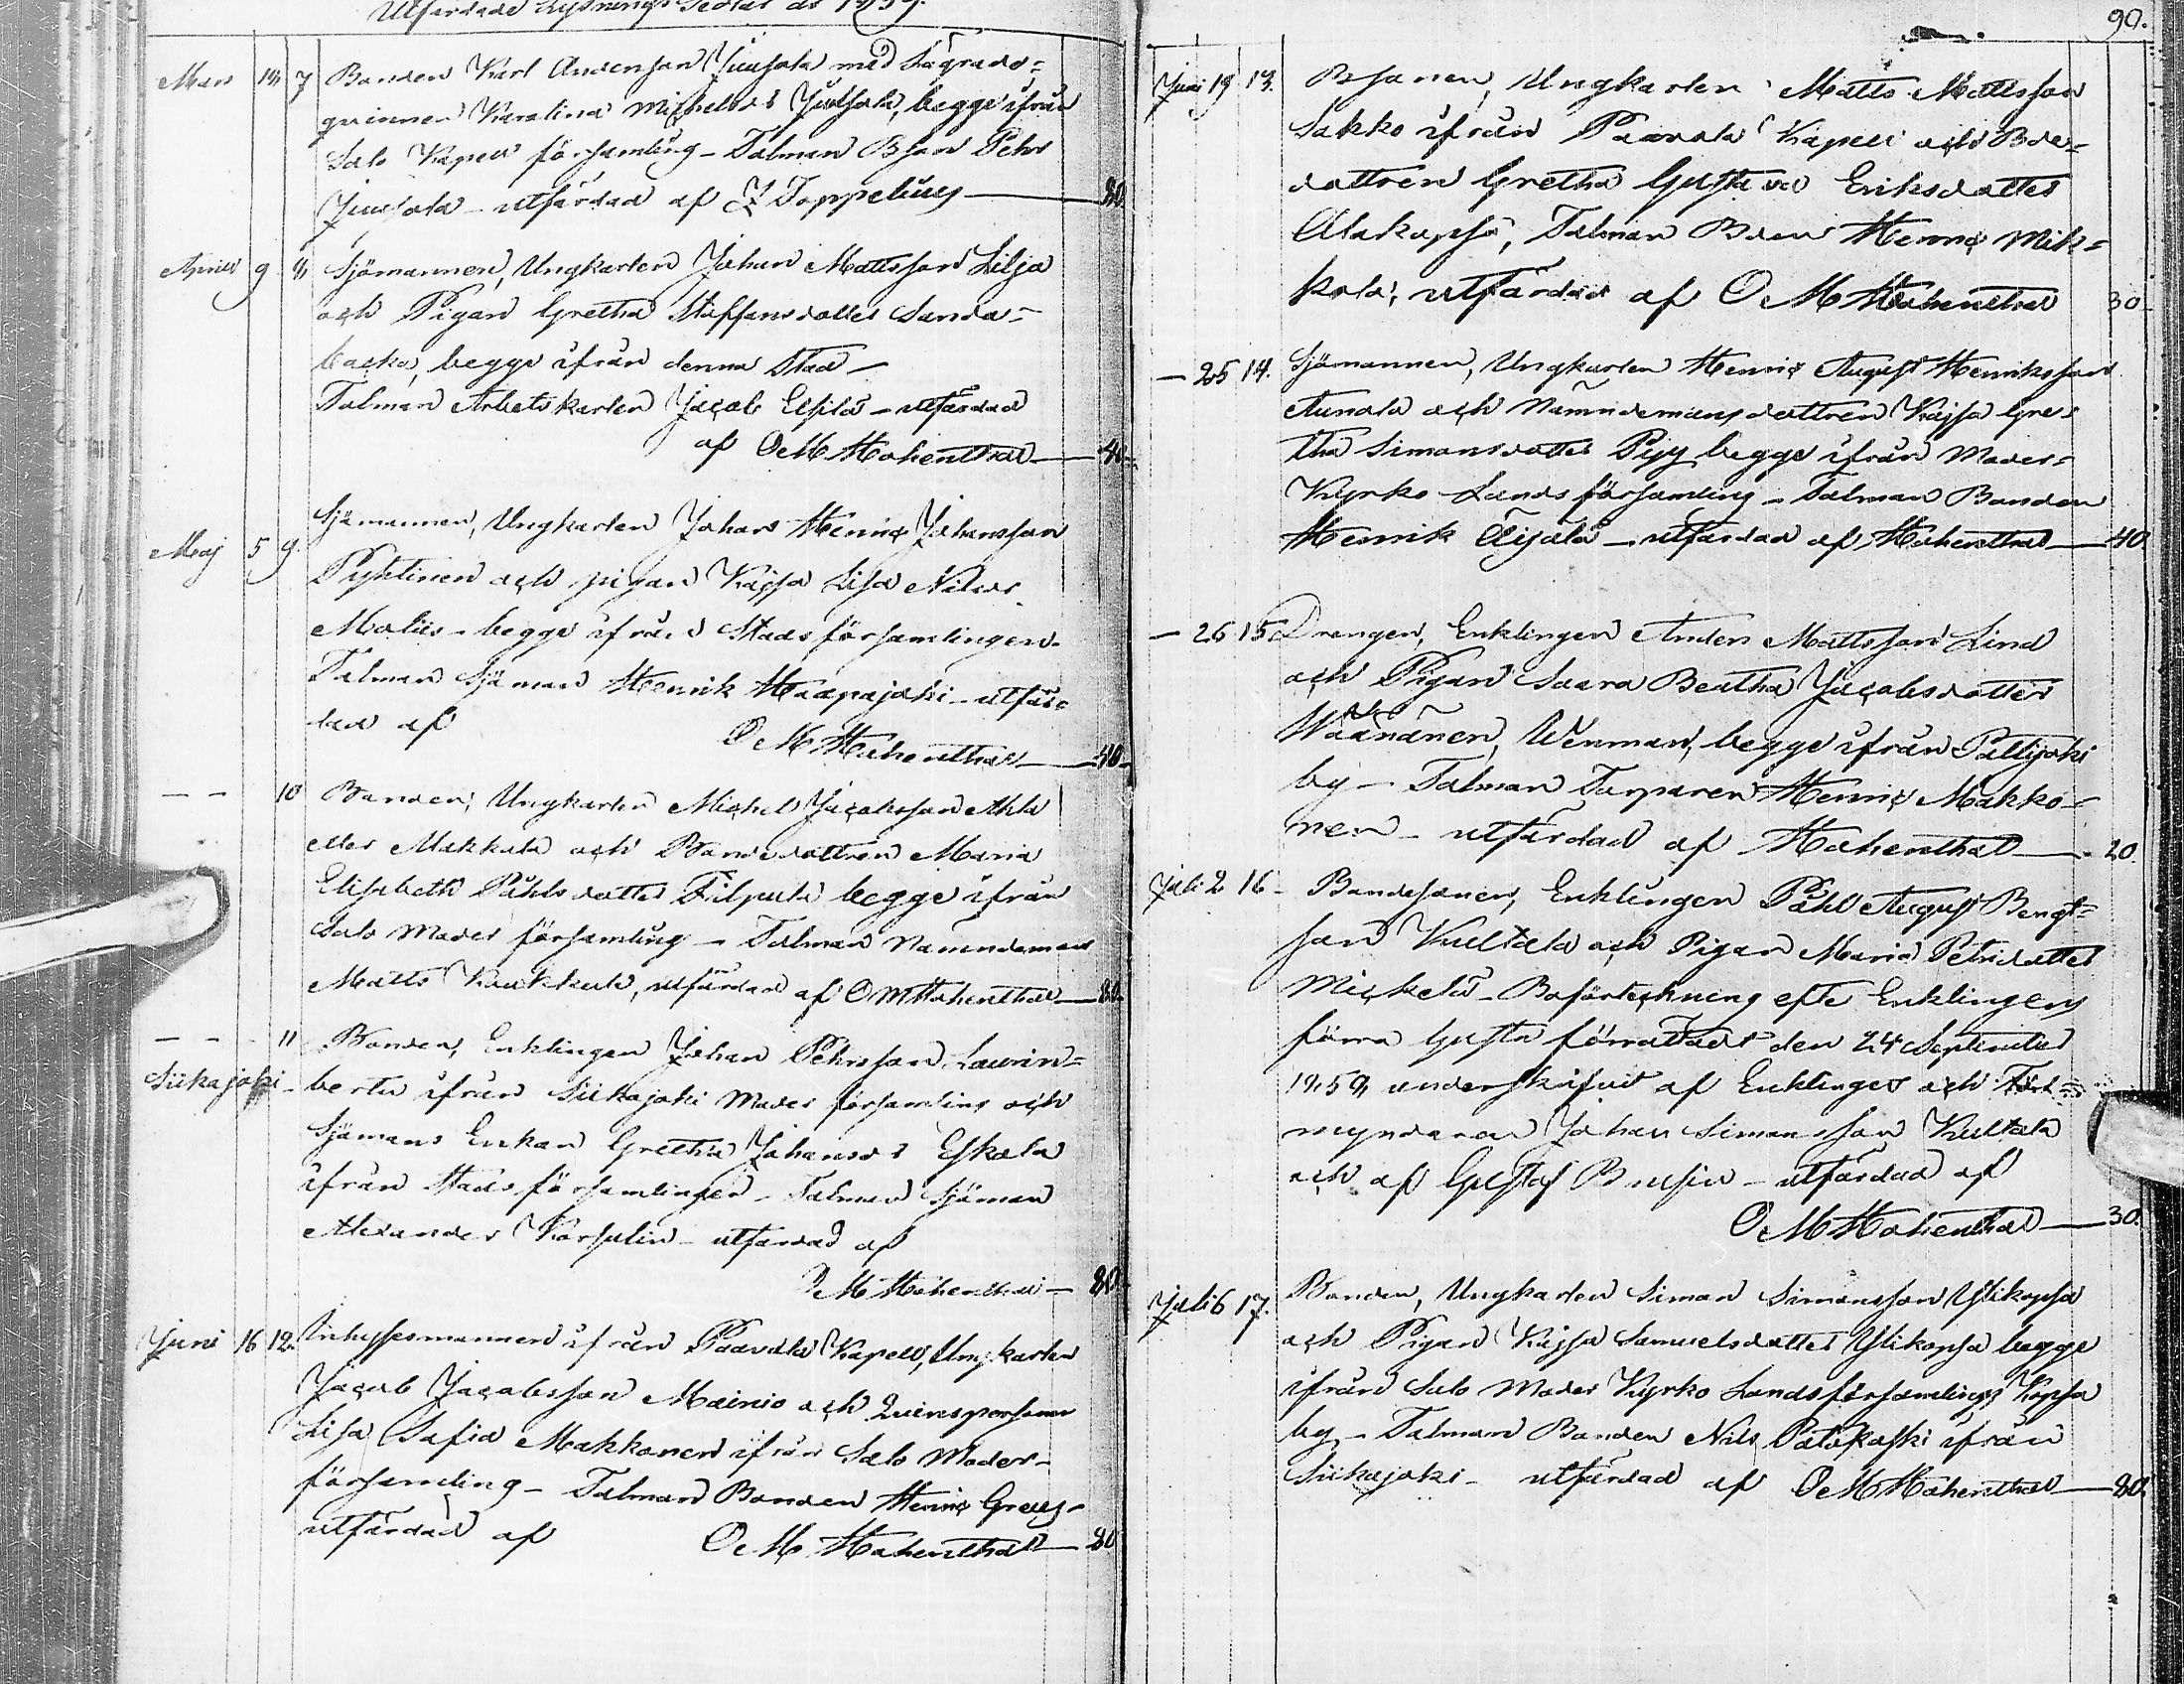 Utfärdade Lysnings Sedlar år 1859.
Mars 18 7 Bonden Karl Andersson Junsola med Lägrads-
qvinnan Karolina Michelsd. Junsola, begge ifrån
Salo Kapell församling - Talman Bson Pehr
Junsola - utfärdad af Z Toppelius — 20
April 9 8 Sjömannen, Ungkarlen Johan Mattsson Lilja
och Pigan Gretha Staffansdotter Sanda-
backa, begge ifrån denna Stad -
Talman Arbetskarlen Jacob Elfila - utfärdad
af O M Hohenthal — 40
Maj 5 9. Sjömannen, Ungkarlen Johan Henric Johansson
och pigan Kajsa Lisa Nilsd.
begge ifrån Stads församlingen.
Talman Sjöman Henrik Haapajoki - utfär-
dad af O M Hohenthal — 40
— — 10 Bonden, Ungkarlen Michel Jacobsson Ahla
eller Makkula och Bondedottren Maria
Elisabeth Påhlsdotter Filpula begge ifrån
Salo Moder församling - Talman Nämndeman
Matts Kukkula, utfärdad af O M Hohenthal — 20
— — 11 Bonden, Enklingen Johan Pehrsson Laurin-
Siikajoki - bertu ifrån Siikajoki Moder församling och
Sjömans Enkan Gretha Johansd. Eskola
ifrån Stads församlingen - Talman Sjöman
Alexander Korsulin - utfärdad af
O M Hohenthal — 20
Juni 16 12. Inhysesmannen ifrån Paavola Kapell, Ungkarlen
Jacob Jacobsson Mainio och Qvinspersonen
Lisa Sofia Makkonen ifrån Salo Moder-
församling - Talman Bonden Henric Greus -
utfärdad af O M Hohenthal — 20
90.
Juni 19 13. Bsonen, Ungkarlen Matts Mattsson
Sakko ifrån Paavola Kapell och Bde-
dottren Gretha Gustava Eriksdotter
Alakopsa, Talman Bden Henric Mik-
kola, utfärdad af O M Hohenthal 30
— 25 14. Sjömannen, Ungkarlen Henric August Henriksson
Aunola och Nämndemansdottren Kajsa Gre-
tha Simonsdotter Pijy begge ifrån Moder-
Kyrko-Lands församling - Talman Bonden
Henrik Äijälä - utfärdad af Hohenthal — 40
— 26 15. Drengen, Enklingen Anders Mattsson Lind
och Pigan Saara Beatha Jacobsdotter
Wäänänen, Wenman, begge ifrån Pattijoki
by - Talman Torparen Henric Makko-
nen - utfärdad af Hohenthal — 20.
Juli 2 16 - Bondesonen, Enklingen Påhl August Bengt-
son Kultala och Pigan Maria Petrsdotter
Mickelä - Boförteckning efte Enklingens
förra hustru förrättadt den 24 September
1858 underskrifvit af Enklingen och För-
myndaren Johan Simonsson Kultala
och af Gustaf Brusin - utfärdad af
O M Hohenthal — 30.
Juli 6 17. Bonden, Ungkarlen Simon Simonsson Ylikopsa
och Pigan Kajsa Samuelsdotter Ylikopsa begge
ifrån Salo Moder Kyrko Landsförsamlings Kopsa
by - Talman Bonden Nils ifrån
Siikajoki - utfärdad af O M Hohenthal — 20.